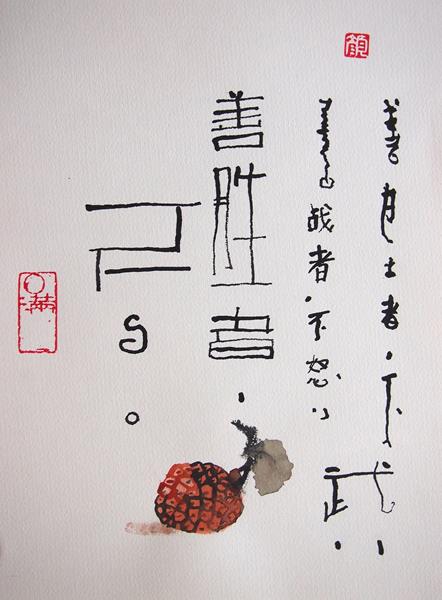 善为士者,不武;
善战者,不怒;
善胜者,